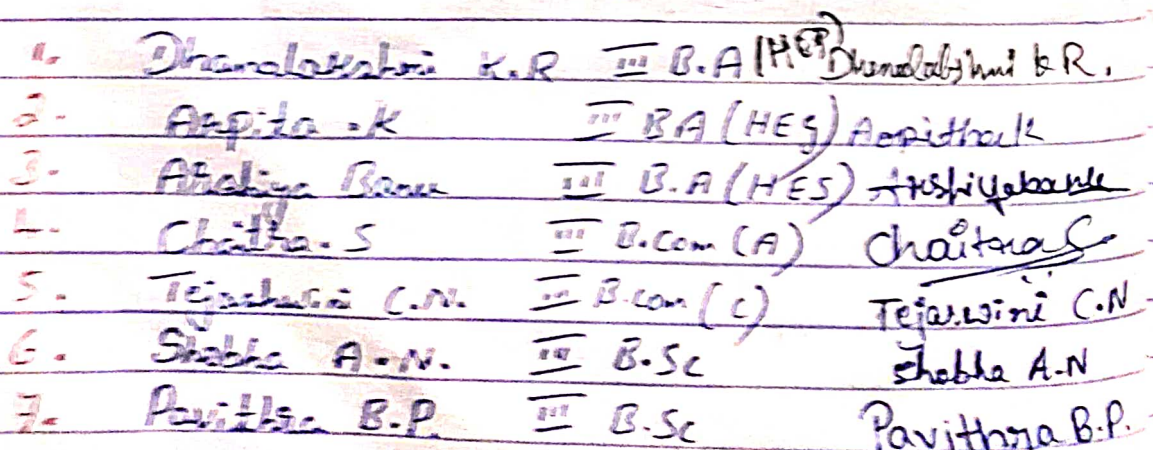 1. Dhanalakshmi K.R III B.A (HEP) Dhanalakshmi K R.
2. Arpita .K III BA (HES) Arpitha K
3. Afshiya Banu III B.A (HES) Afshiyabanu
4. Chaithra. S III B.com (A) Chaithra S
5. Tejashwini C.N. III B.com (C) Tejaswini C.N
6. Shobha A.N. III B.Sc Shobha A.N
7. Pavithra B.P. III B.Sc Pavithra B.P.